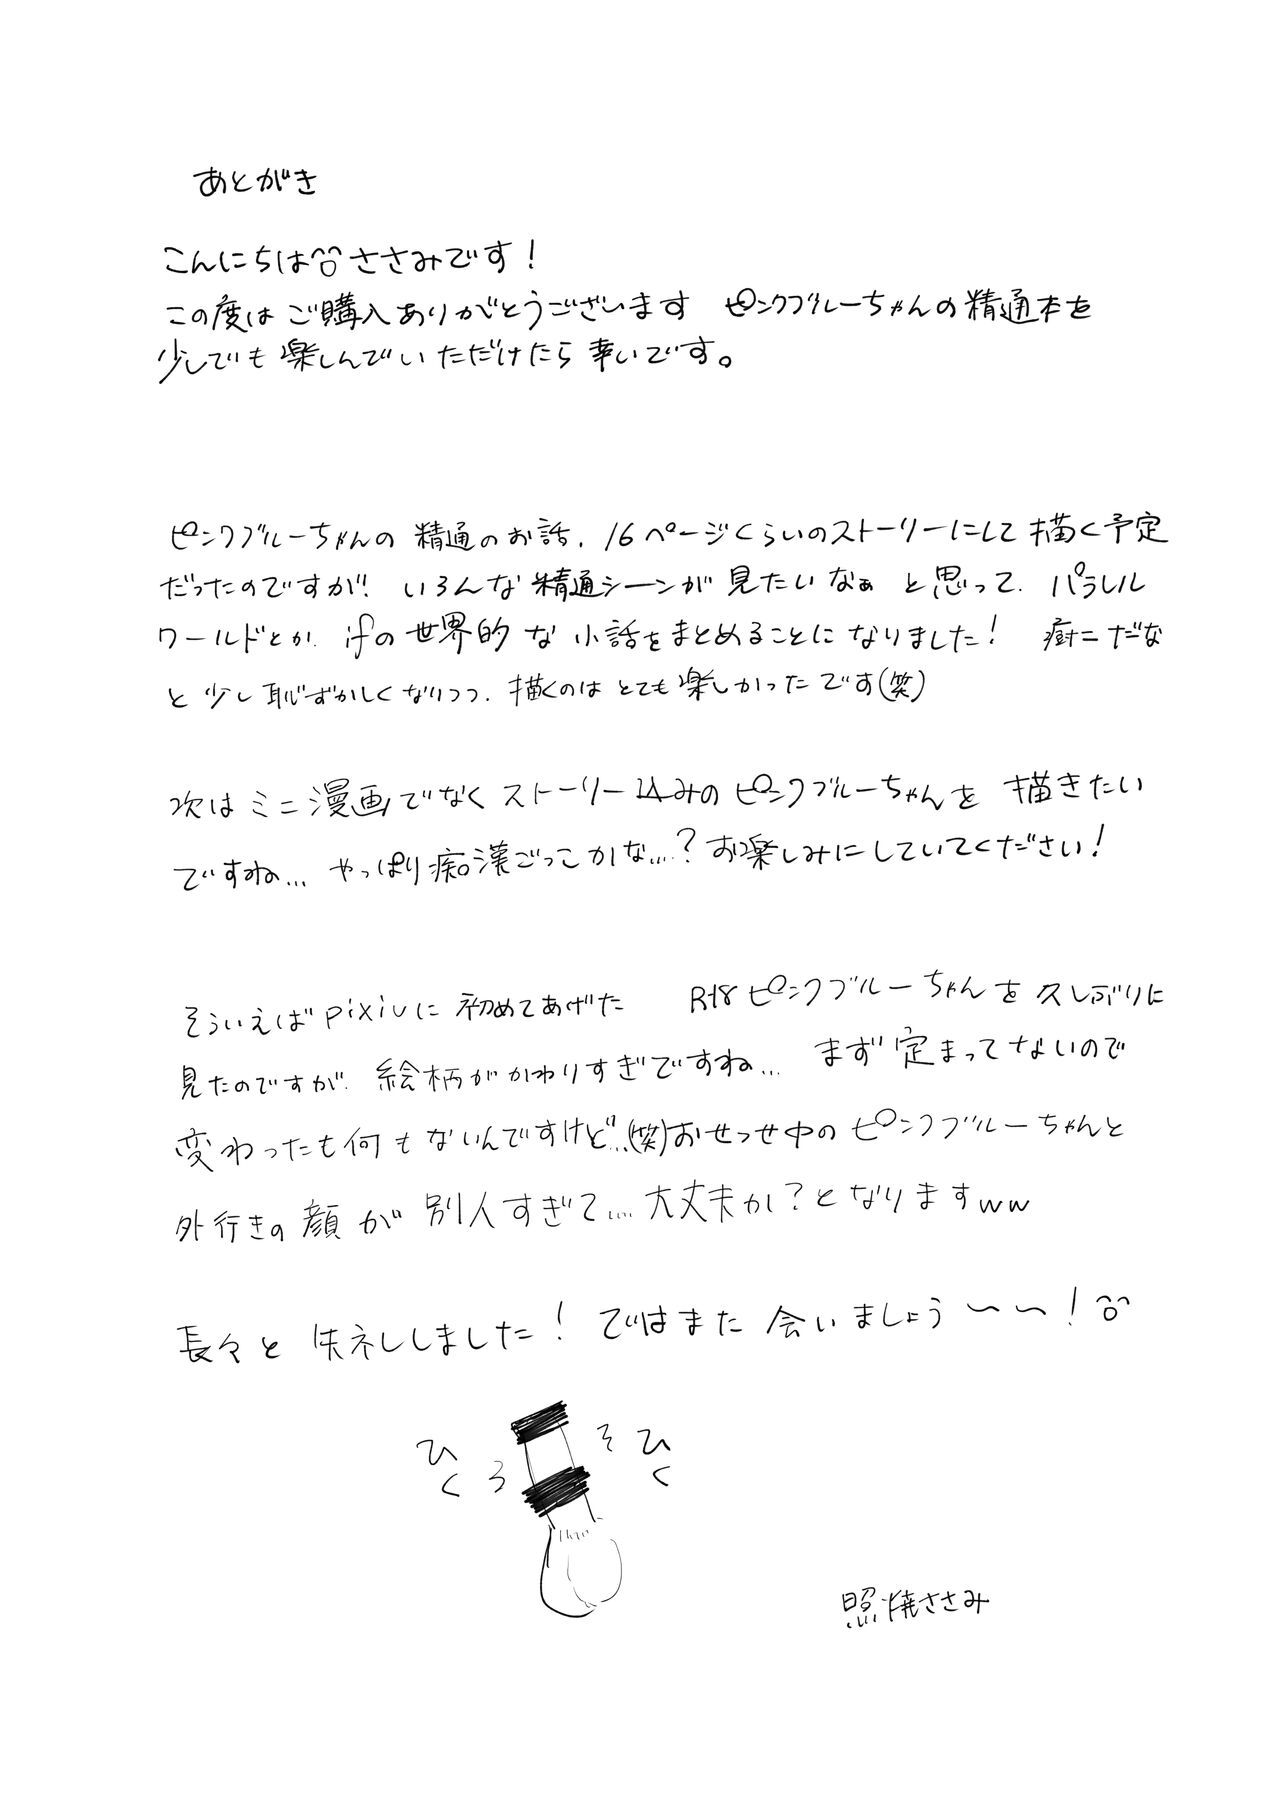 あとがき
こんにちは ささみです!
この度はご購入ありがとうございます ピンクブルーちゃんの精通本を
少しでも楽しんでいただけたら幸いです。
ピンクブルーちゃんの精通のお話、16ページくらいのストーリーにして描く予定
だったのですが! いろんな精通シーンが見たいなぁと思って、パラレル
ワールドとか、ifの世界的な小話をまとめることになりました! 癖だな
と少し恥ずかしくなりつつ、描くのはとても楽しかったです(笑)
次はミニ漫画でなくストーリー込みのピンクブルーちゃんを描きたい
ですね… やっぱり痴漢ごっこかな…? お楽しみにしていてください!
そういえばpixivに初めてあげた R18ピンクブルーちゃんを久しぶりに
見たのですが、絵柄がかわりすぎですね… まず定まってないので
変わったも何もないんですけど…(笑)おせっせ中のピンクブルーちゃんと
外行きの顔が別人すぎて… 大丈夫か?となりますww
長々と失礼しました! ではまた会いましょう〜〜!
ひく ひく
そ
ろ
照焼ささみ